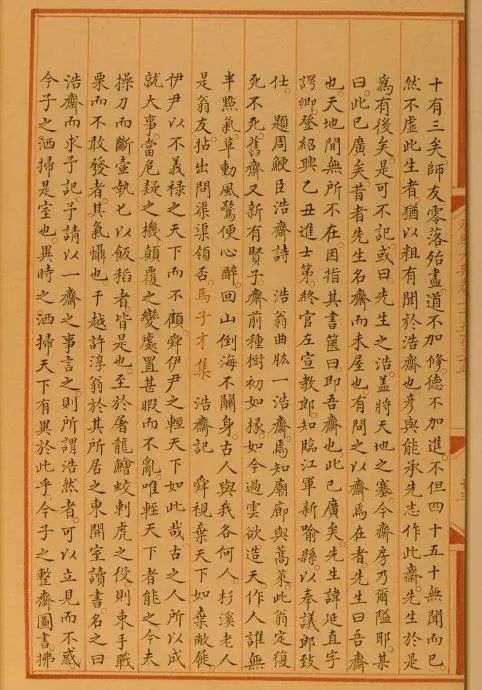 十有三矣師友零落殆盡道不加修德不加進不但四十五十無聞而已
然不虛此生者猶以粗有聞於浩齋也彥與能承先志作此齋先生於是
為有後矣是可不記或曰先生之浩蓋將天地之塞今齋房乃爾隘耶某
曰此已廣矣昔者先生名齋而未屋也有問之以齋焉在者先生曰吾齋
也天地間無所不在因指其書篋曰即吾齋也此已廣矣先生諱延直字
諤卿登紹興乙丑進士第終官左宣教郎知臨江軍新喻縣以奉議郎致
仕　題周鯁臣浩齋詩　浩翁曲肱一浩齋焉知廟廊與蒿萊此翁定復
死不死舊齋又新有賢子齋前種樹初如椽如今過雲欲造天作人誰無
半點氣草動風驚便心醉回山倒海不關身古人與我各何人杉溪老人
是翁友拈出問渠渠領否馬子才集　浩齋記　舜視棄天下如棄敝屣
伊尹以不義祿之天下而不顧舜伊尹之輕天下如此哉古之人所以成
就大事當危疑之機顛覆之變處置甚暇而不亂唯輕天下者能之今夫
操刀而斷壺執匕以飯稻者皆是也至於屠龍鱠蛟刺虎之役則束手戰
栗而不敢發者其氣懾也干越許淳翁於其所居之東開室讀書名之曰
浩齋而求予記予請以一齋之事言之則所謂浩然者可以立見而不惑
今子之洒掃是室也異時之洒掃天下有異於此乎今子之整齋圖書拂